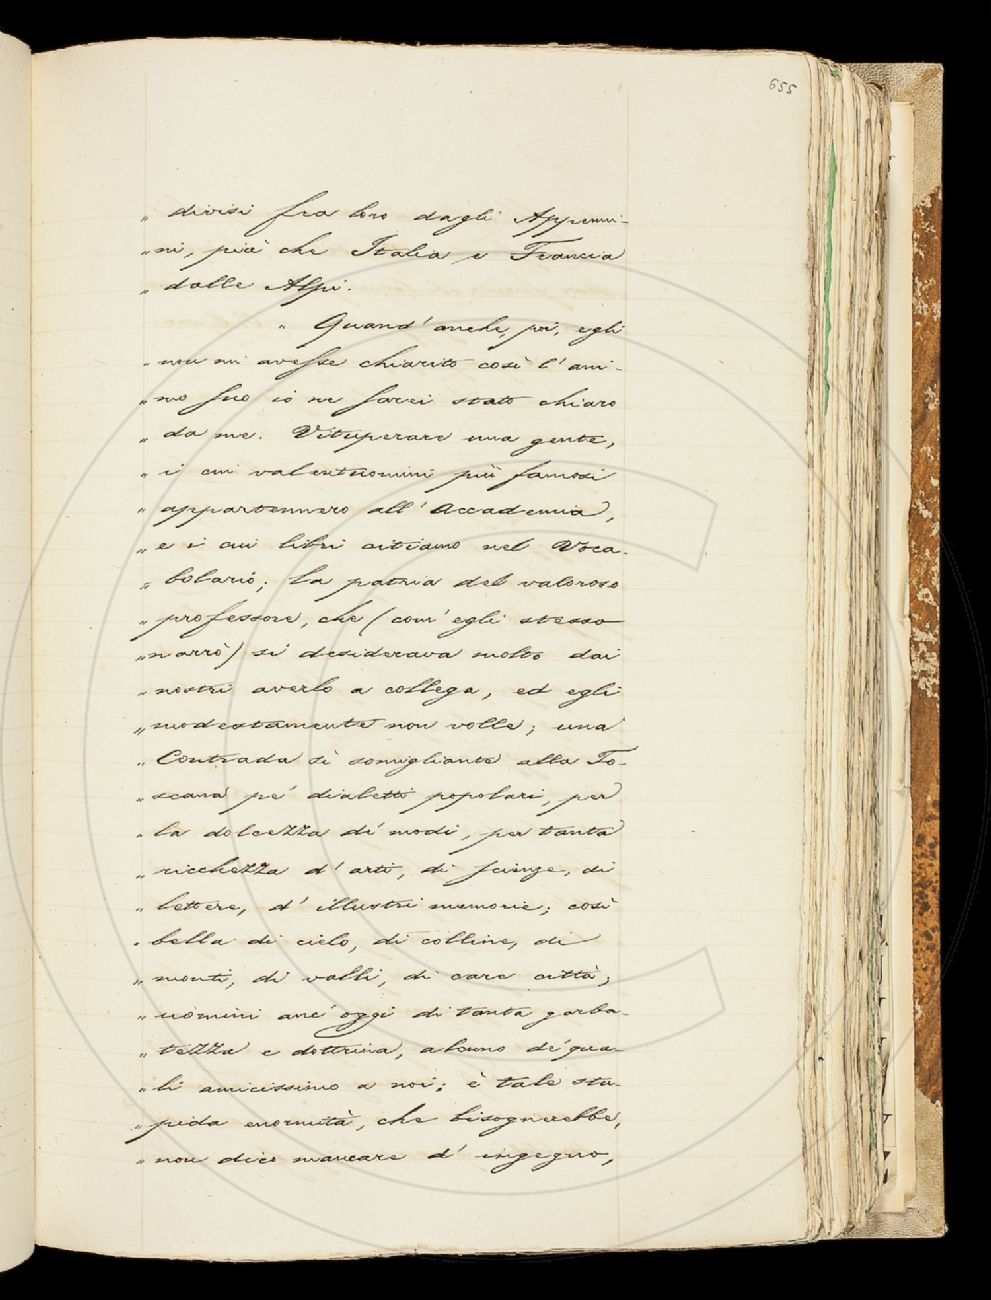 655
„ divisi fra loro dagli Appenni-
„ ni, più che Italia e Francia
„ dalle Alpi.
„ Quand' anche, poi, egli
„ non mi avesse chiarito così l' ani-
„ mo suo io ne sarei stato chiaro
„ da me. Vituperare una gente,
„ i cui valentuomini più famosi
„ appartennero all' Accademia,
„ e i cui libri citiamo nel Voca-
„ bolario; la patria del valoroso
„ professore, che (com' egli stesso
„ narrò) si desiderava molto dai
„ nostri averlo a collega, ed egli
„ modestamente non volle; una
„ Contrada sì somigliante alla To-
„ scana pe' dialetti popolari, per
„ la dolcezza de' modi, per tanta
„ ricchezza d' arti, di scienze, di
„ lettere, d' illustri memorie; così
„ bella di cielo, di colline, di
„ monti, di valli, di care città;
„ uomini anc' oggi di tanta garba-
„ tezza e dottrina, alcuno de' qua-
„ li amicissimo a noi; è tale stu-
„ pida enormità, che bisognerebbe,
„ non dico mancare d' ingegno,